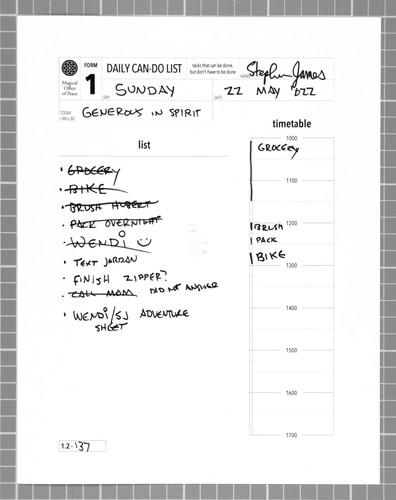 FORM
1
Magical
Office
of Peace
DAILY CAN-DO LIST
tasks that can be done,
but don't have to be done
NAME
Stephen James
DAY
SUNDAY
DATE
22 MAY '022
TODAY,
I WILL BE
GENEROUS IN SPIRIT
list
• GROCERY
• BIKE
• BRUSH HUBERT
• PACK OVERNIGHT
• WENDI
• TEXT JORDAN
• FINISH ZIPPER?
• CALL MOM DID NOT ANSWER
• WENDI/SJ ADVENTURE
SHEET
timetable
1000
GROCERY
1100
1200
BRUSH
PACK
BIKE
1300
1400
1500
1600
1700
1.2-137